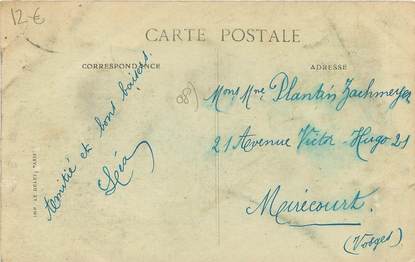 12-€
CARTE POSTALE
CORRESPONDANCE
ADRESSE
Amitié et bons baisers.
Léa
Mons Mme Plantin Zachmeyer
21 Avenue Victor-Hugo 21
Mirécourt.
(Vosges)
IMP. LE DELEY, PARIS